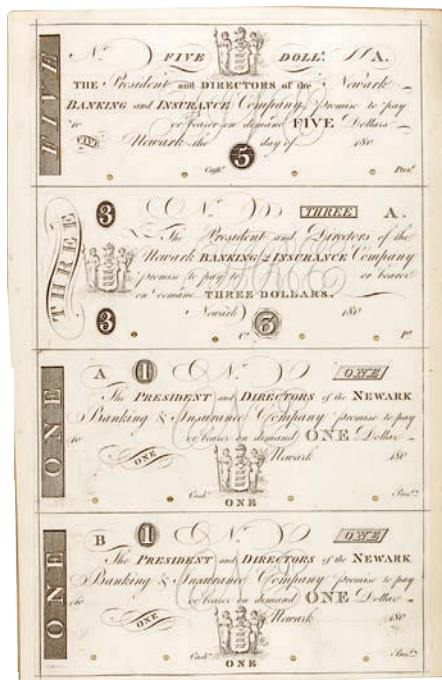 FIVE
No. FIVE DOLLs. A.
THE President and DIRECTORS of the Newark
BANKING and INSURANCE Company promise to pay
to or bearer on demand FIVE Dollars
FIVE Newark the day of 180
5
Cashr. Prest.
THREE
3 No. THREE A.
The President and Directors of the
Newark BANKING & INSURANCE Company
promise to pay to or bearer
on demand THREE DOLLARS.
Newark 180
3 Cr. 3 Pt.
ONE
A 1 No. ONE
The PRESIDENT and DIRECTORS of the NEWARK
Banking & Insurance Company promise to pay
to or bearer on demand ONE Dollar
ONE Newark 180
Cashr. Prest.
ONE
ONE
B 1 No. ONE
The PRESIDENT and DIRECTORS of the NEWARK
Banking & Insurance Company promise to pay
to or bearer on demand ONE Dollar
ONE Newark 180
Cashr. Prest.
ONE